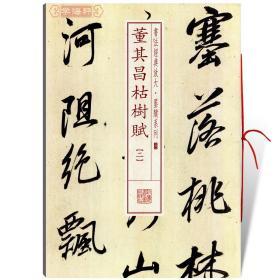 塞落桃林
河阻绝飘
書法經典放大·墨蹟系列
董其昌枯樹賦
【二】
学海轩